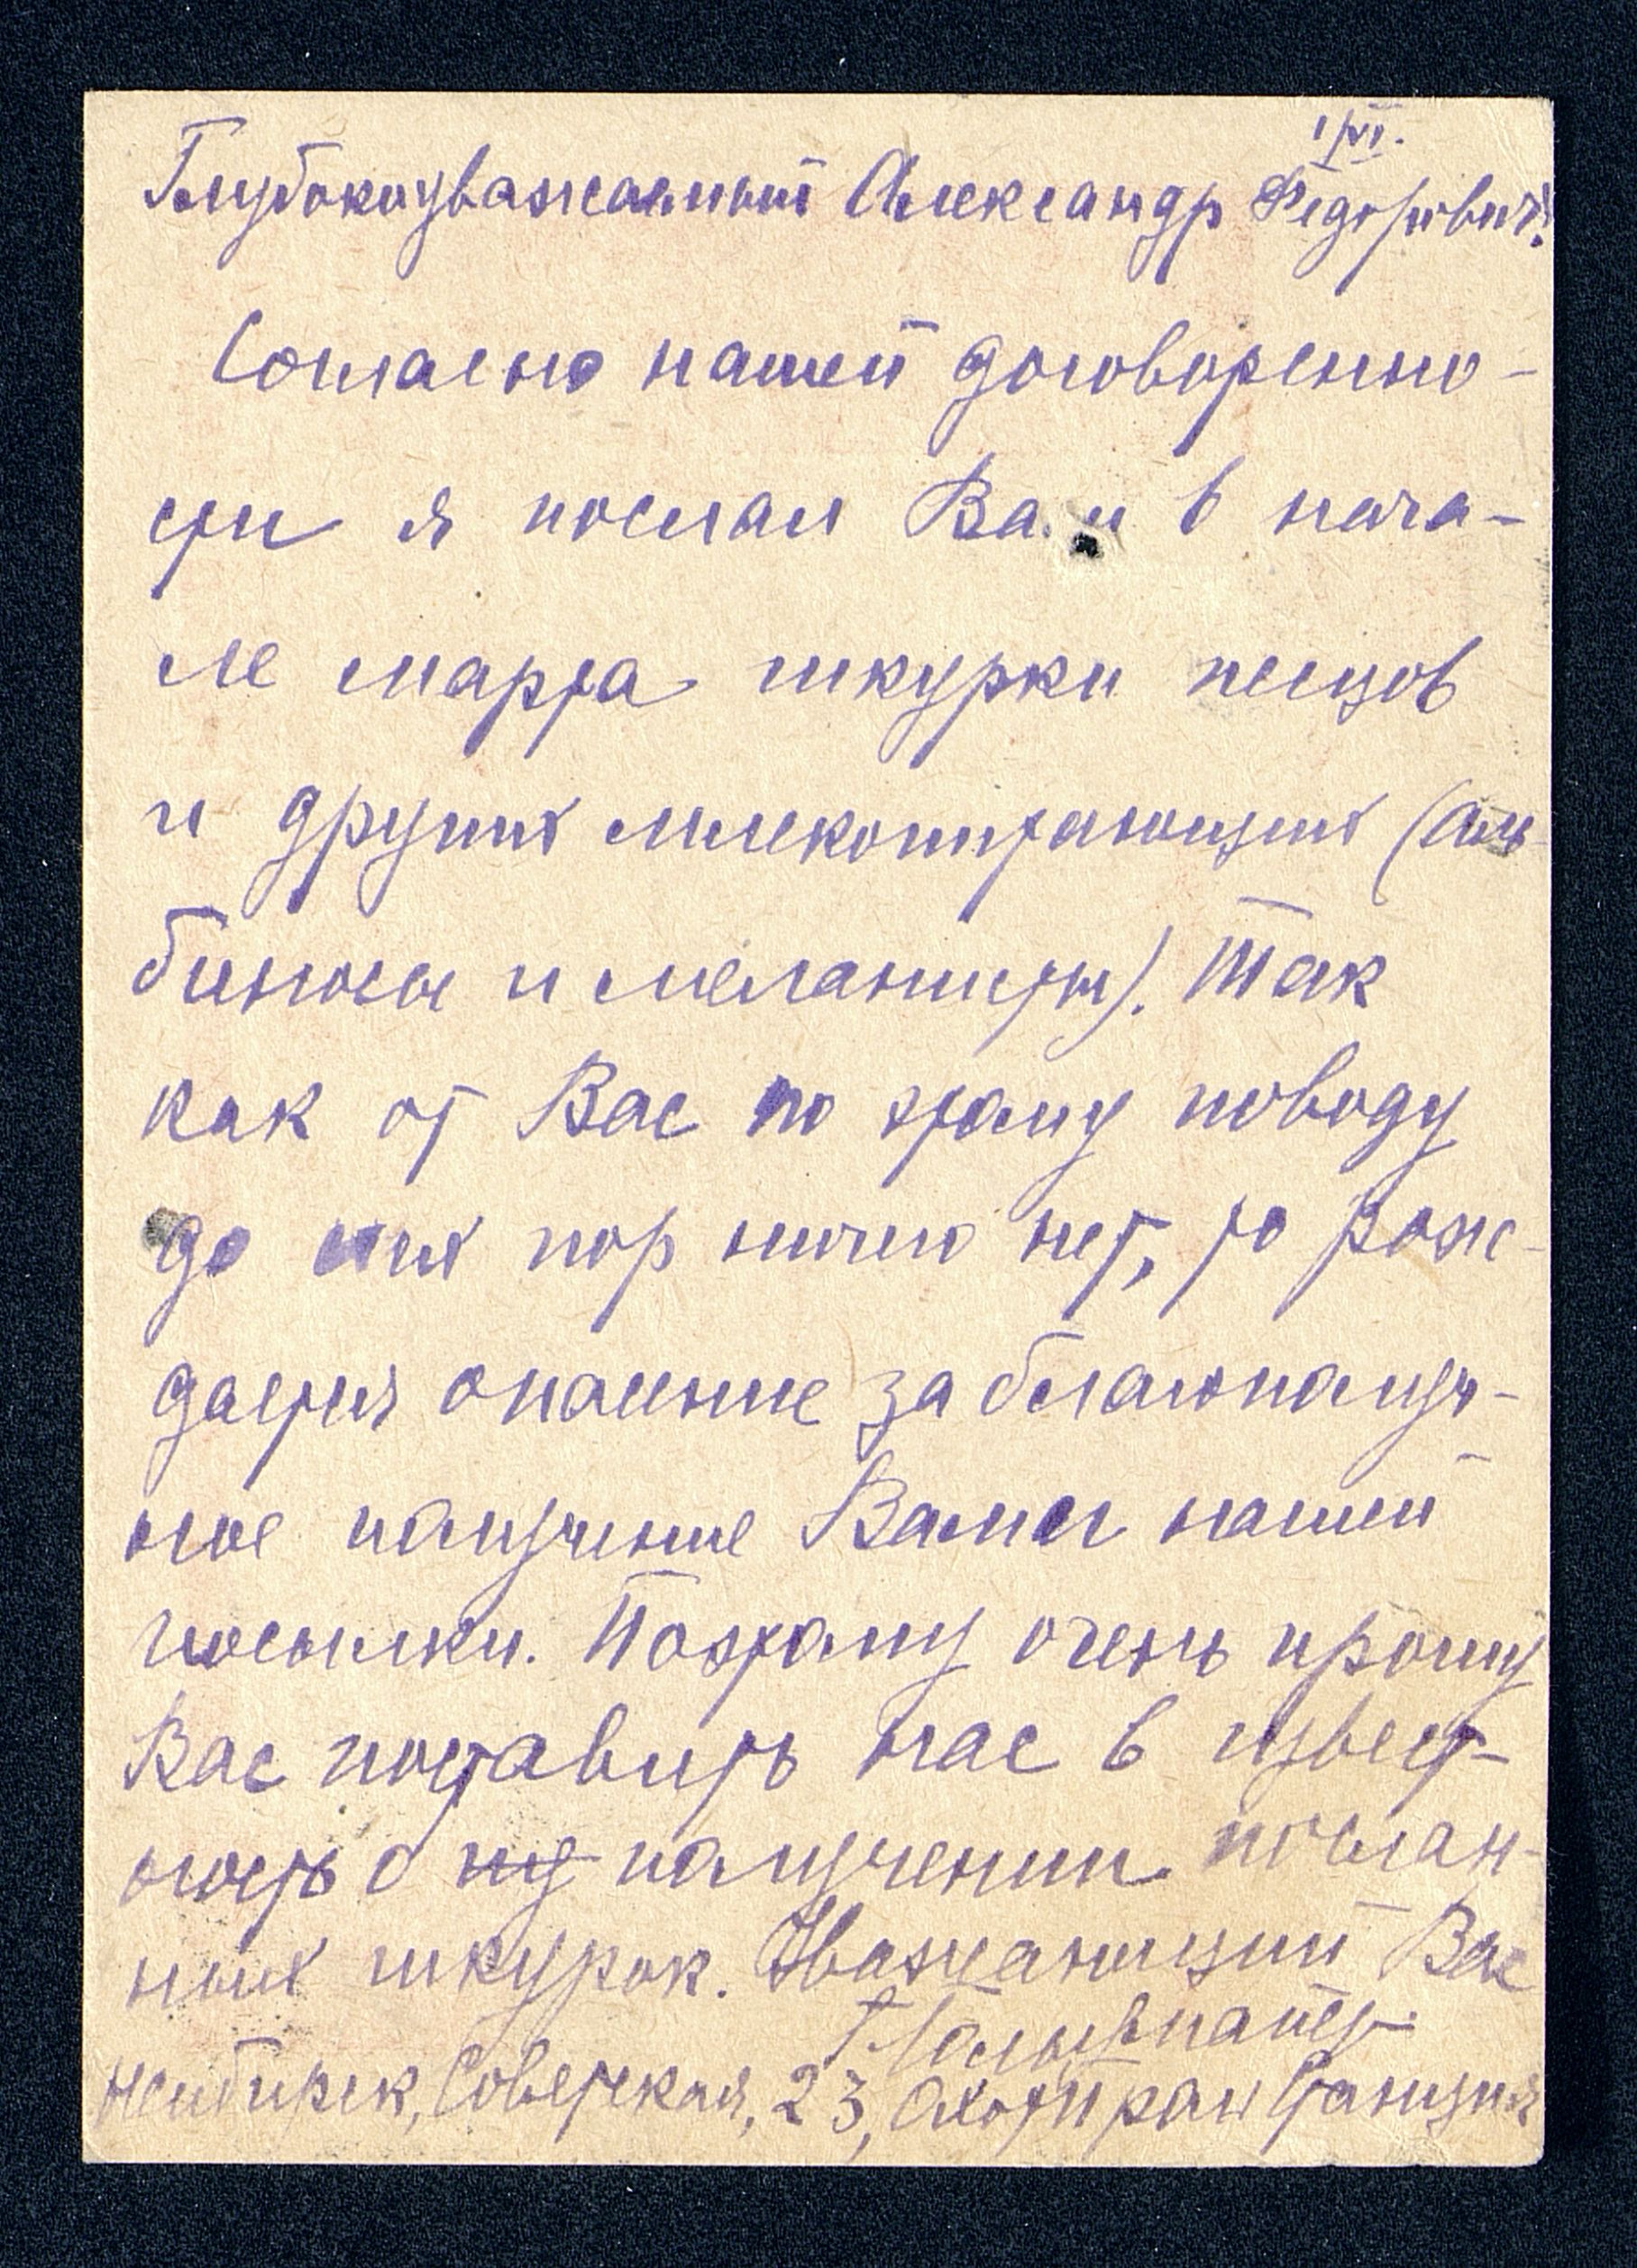 1/VI.
Глубокоуважаемый Александр Федорович!
Согласно нашей договоренно-
сти я послал Вам в нача-
ле марта шкурки песцов
и других млекопитающих (аль-
биносы и меланисты). Так
как от Вас по этому поводу
до сих пор ничего нет, то рож-
дается опасение за благополуч-
ное получение Вами нашей
посылки. Поэтому очень прошу
Вас поставить нас в извест-
ность о получении послан-
ных шкурок. Уважающий Вас
Нсибирск, Советская, 23, Охотпром Станция